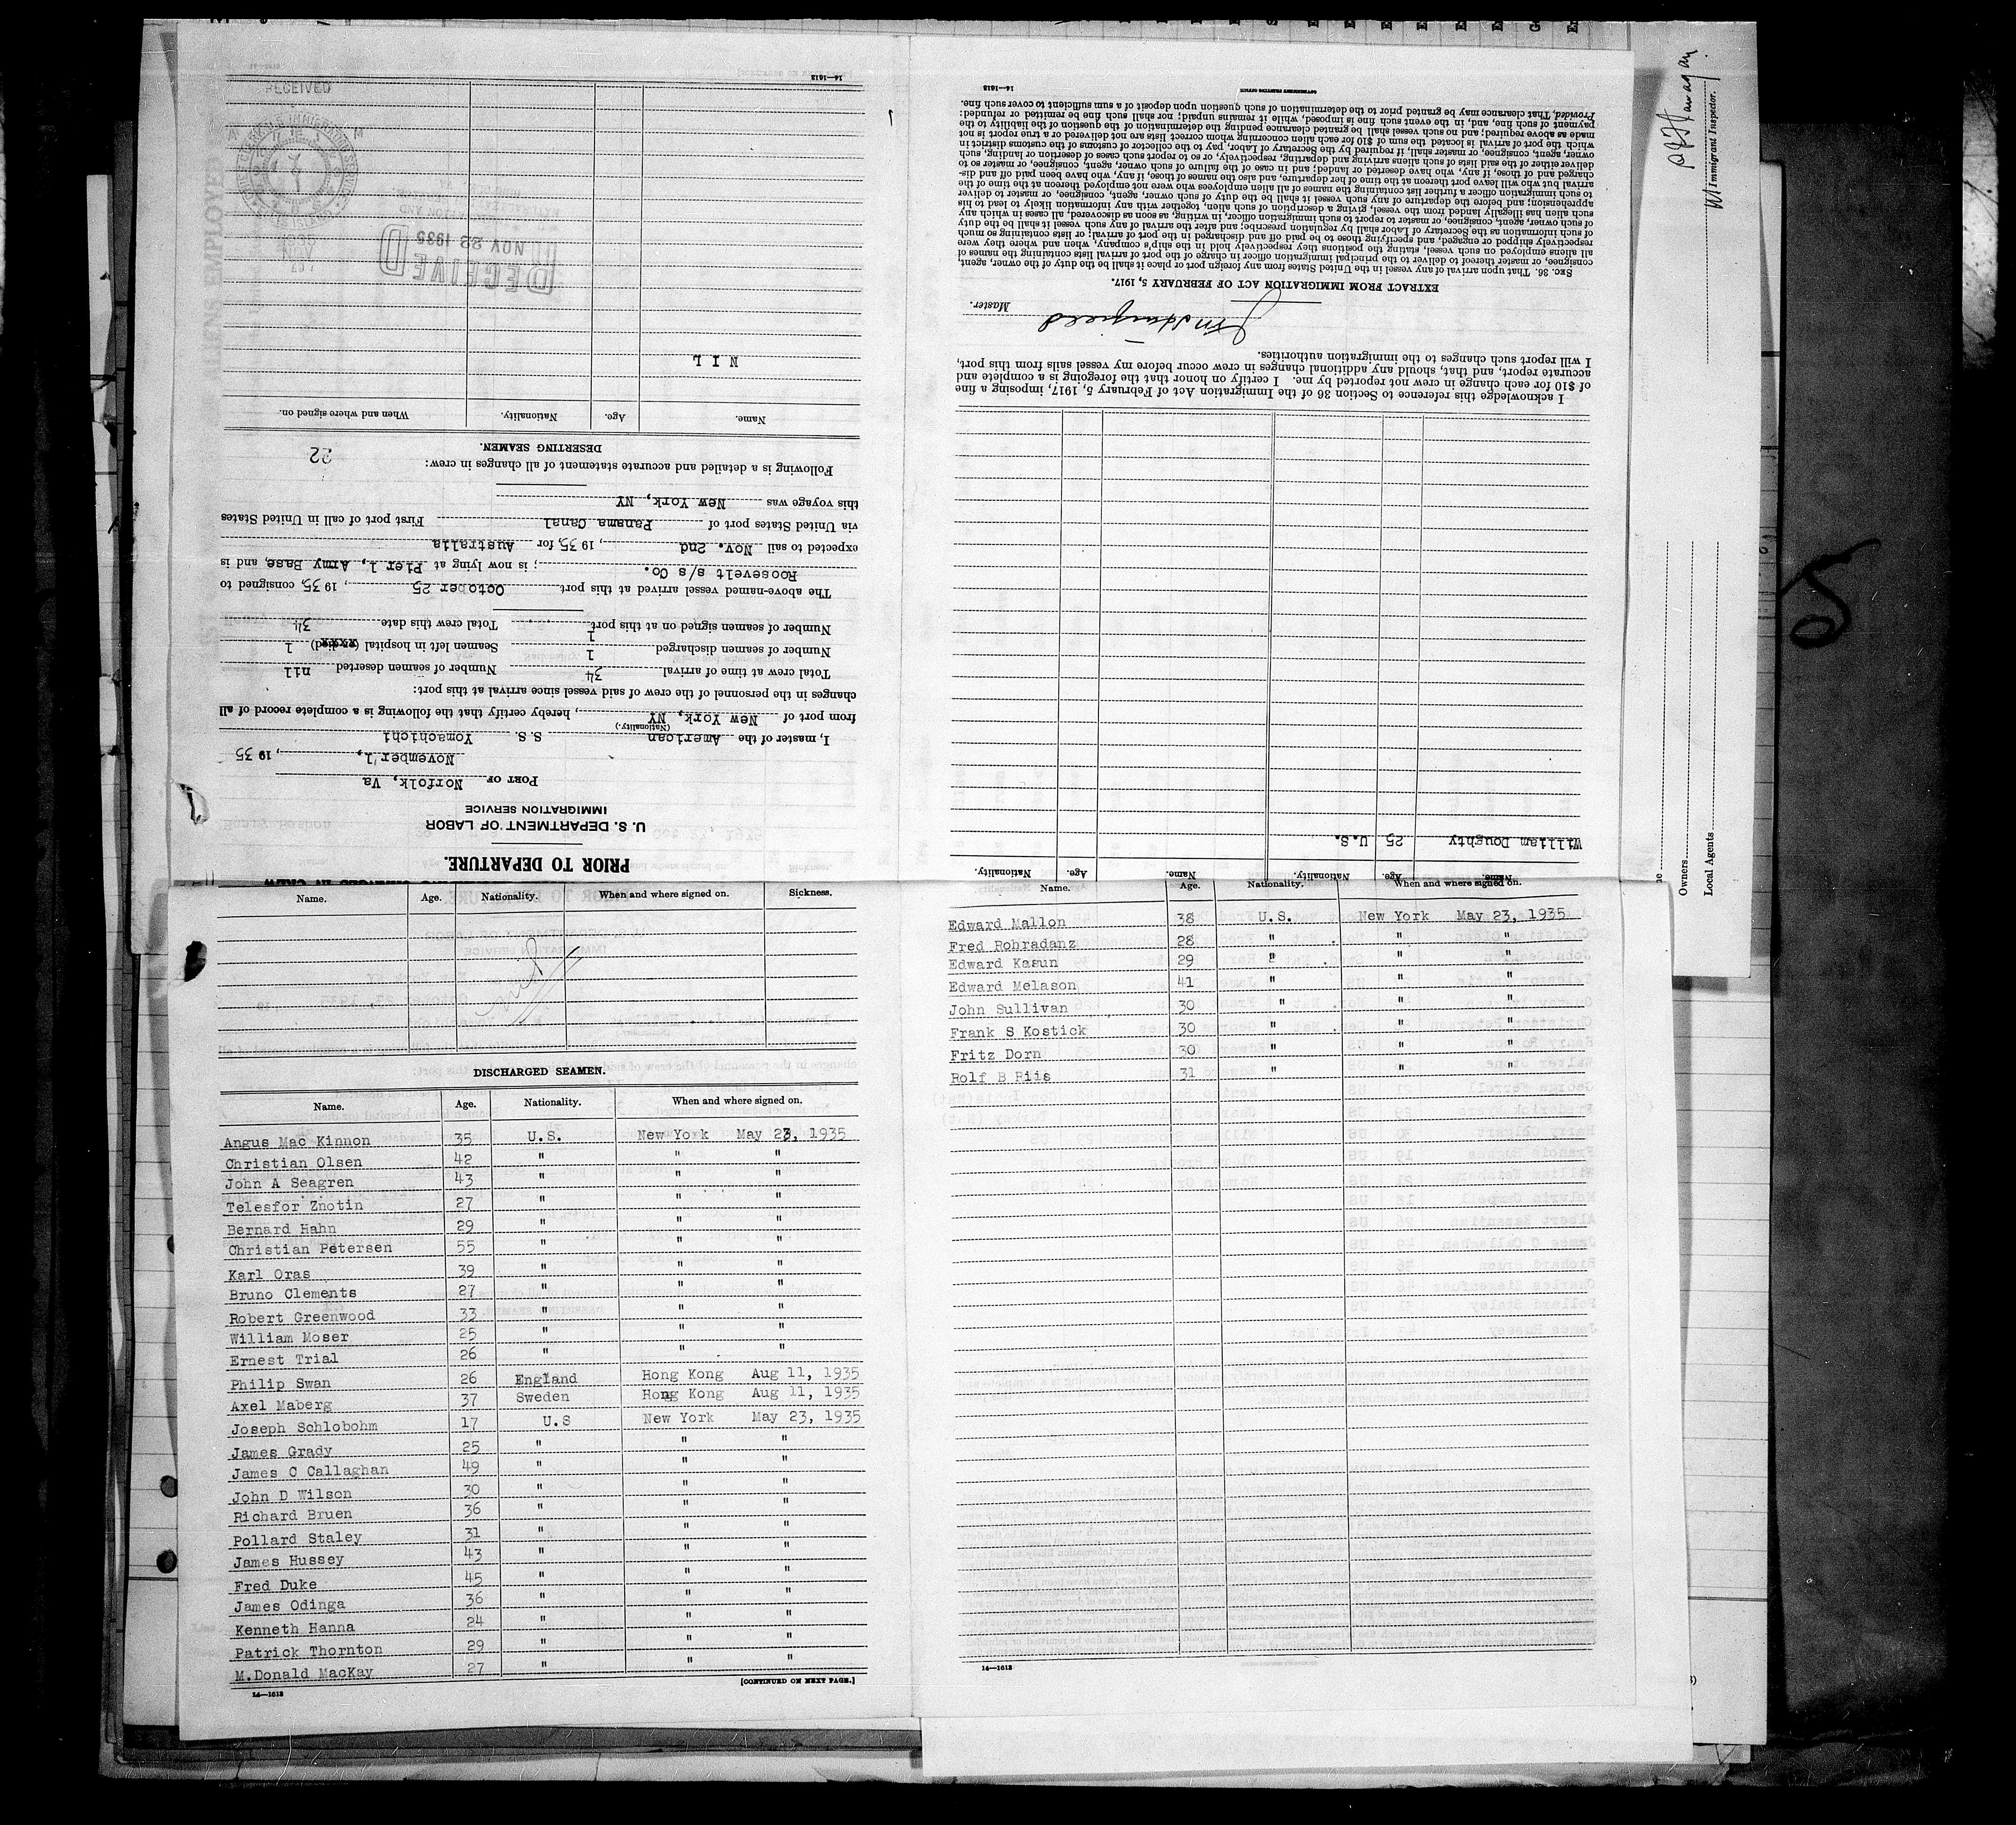 PRIOR TO DEPARTURE.
U. S. DEPARTMENT OF LABOR
IMMIGRATION SERVICE
PORT OF Norfolk, Va
November 1, 1935
I, master of the American S. S. Yomachichi
(Nationality.)
from port of New York, NY, hereby certify that the following is a complete record of all
changes in the personnel of the crew of said vessel since arrival at this port:
Total crew at time of arrival 34 Number of seamen deserted nil
Number of seamen discharged 1 Seamen left in hospital 1
Number of seamen signed on at this port 1 Total crew this date 34
The above-named vessel arrived at this port October 25, 1935, consigned to
Roosevelt s/s Co.; is now lying at Pier 1, Army Base, and is
expected to sail Nov. 2nd, 1935, for Australia
via United States port of Panama Canal First port of call in United States
this voyage was New York, NY
Following is a detailed and accurate statement of all changes in crew:
22
DESERTING SEAMEN.
Name. Age. Nationality. When and where signed on.
NIL
RECEIVED
NOV 22 1935
RECEIVED
14—1613
Name. Age. Nationality. Name. Age. Nationality.
William Doughty 25 U.S.
I acknowledge this reference to Section 36 of the Immigration Act of February 5, 1917, imposing a fine
of $10 for each change in crew not reported by me. I certify on honor that the foregoing is a complete and
accurate report, and that, should any additional changes in crew occur before my vessel sails from this port,
I will report such changes to the immigration authorities.
Master.
EXTRACT FROM IMMIGRATION ACT OF FEBRUARY 5, 1917.
SEC. 36. That upon arrival of any vessel in the United States from any foreign port or place it shall be the duty of the owner, agent,
consignee, or master thereof to deliver to the principal immigration officer in charge of the port of arrival lists containing the names of
all aliens employed on such vessel, stating the positions they respectively hold in the ship's company, when and where they were
respectively shipped or engaged, and specifying those to be paid off and discharged in the port of arrival; or lists containing so much
of such information as the Secretary of Labor shall by regulation prescribe; and after the arrival of any such vessel it shall be the duty
of such owner, agent, consignee, or master to report to such immigration officer, in writing, as soon as discovered, all cases in which any
such alien has illegally landed from the vessel, giving a description of such alien, together with any information likely to lead to his
apprehension; and before the departure of any such vessel it shall be the duty of such owner, agent, consignee, or master to deliver
to such immigration officer a further list containing the names of all alien employees who were not employed thereon at the time of the
arrival but who will leave port thereon at the time of her departure, and also the names of those, if any, who have been paid off and dis-
charged and of those, if any, who have deserted or landed; and in case of the failure of such owner, agent, consignee, or master so to
deliver either of the said lists of such aliens arriving and departing, respectively, or so to report such cases of desertion or landing, such
owner, agent, consignee, or master shall, if required by the Secretary of Labor, pay to the collector of customs of the customs district in
which the port of arrival is located the sum of $10 for each alien concerning whom correct lists are not delivered or a true report is not
made as above required; and no such vessel shall be granted clearance pending the determination of the question of the liability to the
payment of such fine, and, in the event such fine is imposed, while it remains unpaid; nor shall such fine be remitted or refunded:
Provided, That clearance may be granted prior to the determination of such question upon deposit of a sum sufficient to cover such fine.
GOVERNMENT PRINTING OFFICE 14—1613
Immigrant Inspector.
Owners
Local Agents
Name. Age. Nationality. When and where signed on. Sickness.
DISCHARGED SEAMEN.
Name. Age. Nationality. When and where signed on.
Angus Mac Kinnon 35 U.S. New York May 23, 1935
Christian Olsen 42 " " "
John A Seagren 43 " " "
Telesfor Znotin 27 " " "
Bernard Hahn 29 " " "
Christian Petersen 55 " " "
Karl Oras 39 " " "
Bruno Clements 27 " " "
Robert Greenwood 33 " " "
William Moser 25 " " "
Ernest Trial 26 " " "
Philip Swan 26 England Hong Kong Aug 11, 1935
Axel Maberg 37 Sweden Hong Kong Aug 11, 1935
Joseph Schlobohm 17 U.S New York May 23, 1935
James Grady 25 " " "
James C Callaghan 49 " " "
John D Wilson 30 " " "
Richard Bruen 36 " " "
Pollard Staley 31 " " "
James Hussey 43 " " "
Fred Duke 45 " " "
James Odinga 36 " " "
Kenneth Hanna 24 " " "
Patrick Thornton 29 " " "
M.Donald MacKay 27 " " "
14—1613 [CONTINUED ON NEXT PAGE.]
Name. Age. Nationality. When and where signed on.
Edward Mallon 38 U.S. New York May 23, 1935
Fred Rohradanz 28 " " "
Edward Kasun 29 " " "
Edward Melason 41 " " "
John Sullivan 30 " " "
Frank S Kostick 30 " " "
Fritz Dorn 30 " " "
Rolf B Riis 31 " " "
14—1613